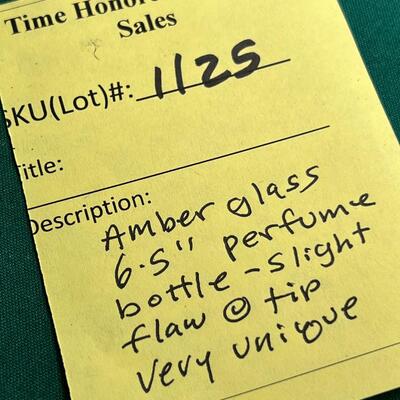 Time Honor
Sales
SKU(Lot)#: 1125
Title:
Description:
Amber glass
6.5" perfume
bottle - slight
flaw @ tip
very unique